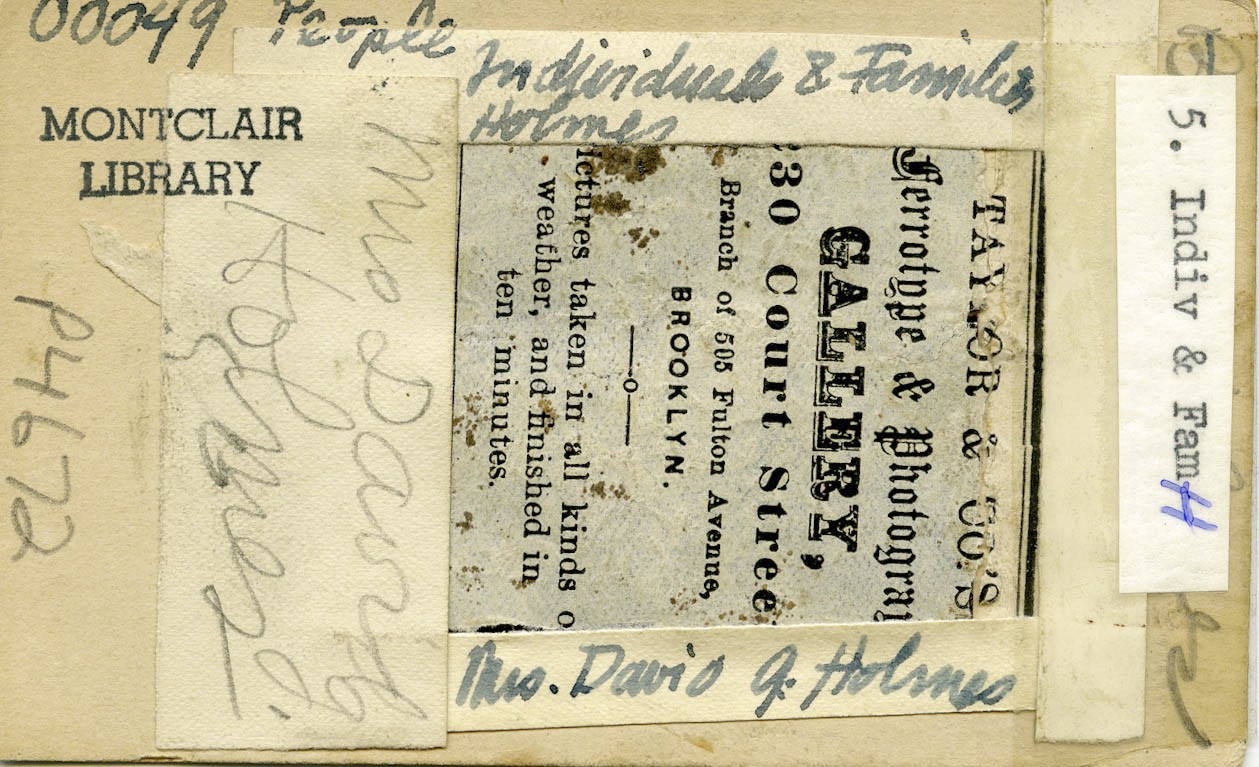 00049 People
Individuals & Families
Holmes
MONTCLAIR
LIBRARY
P4672
Mrs David G.
Holmes
TAYLOR & CO.'S
Ferrotype & Photograp
GALLERY,
30 Court Stree
Branch of 505 Fulton Avenue,
BROOKLYN.
—o—
ictures taken in all kinds o
weather, and finished in
ten minutes.
Mrs. David G. Holmes
5. Indiv & Fam H